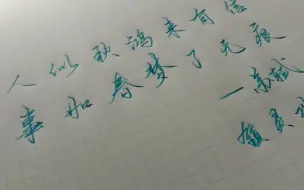 人似秋鸿来有信
事如春梦了无痕
—苏轼